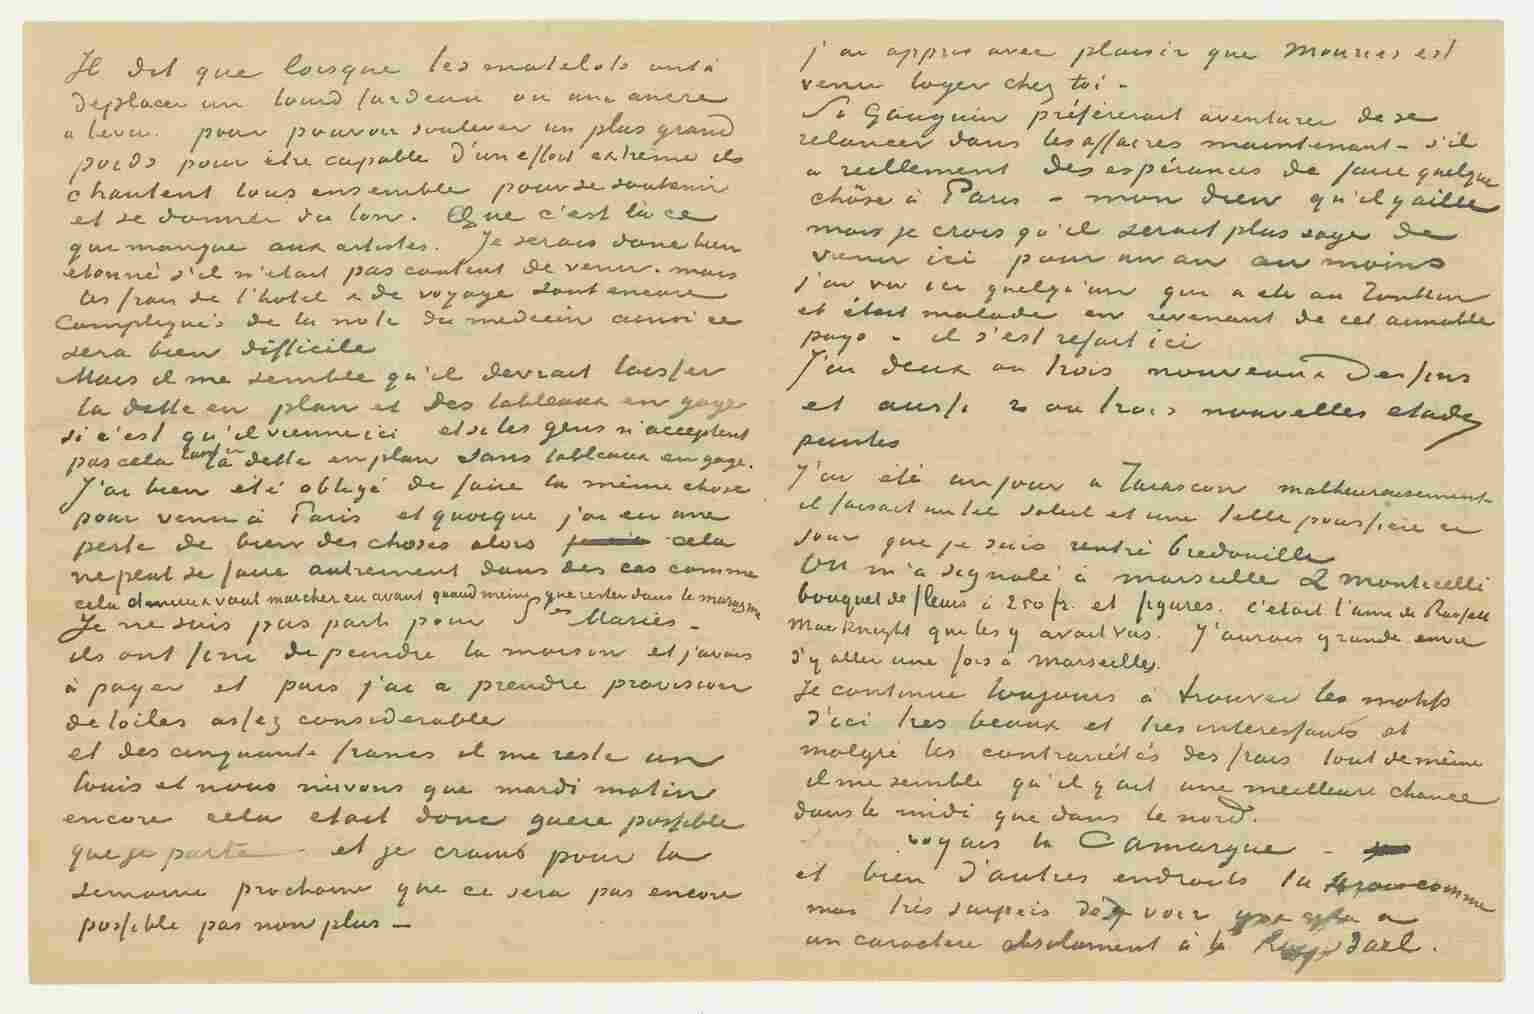 Il dit que lorsque les matelots ont à
deplacer un lourd fardeau ou une ancre
a lever. pour pouvoir soulever un plus grand
poids pour être capable d'un effort extrême ils
chantent tous ensemble pour se soutenir
et se donner du ton. Que c'est là ce
qui manque aux artistes. Je serais donc bien
étonné s'il n'était pas content de venir. mais
les frais de l'hotel & de voyage sont encore
compliqués de la note du medecin aussi ce
sera bien difficile
Mais il me semble qu'il devrait laisser
la dette en plan et des tableaux en gage
si c'est qu'il vienne ici et si les gens n'acceptent
pas cela la dette en plan sans tableaux en gage.
J'ai bien été obligé de faire la même chose
pour venir à Paris et quoique j'ai eu une
perte de bien des choses alors cela
ne peut se faire autrement dans des cas comme
cela mieux vaut marcher en avant quand meme que rester dans le marasme
Je ne suis pas parti pour Stes Maries –
ils ont fini de peindre la maison et j'avais
à payer et puis j'ai a prendre provision
de toiles assez considerable
et des cinquante francs il me reste un
louis et nous n'avons que mardi matin
encore cela etait donc guère possible
que je parte – et je crains pour la
semaine prochaine que ce sera pas encore
possible pas non plus –
j'ai appris avec plaisir que Mouries est
venu loger chez toi –
Si Gauguin préférerait aventurer de se
relancer dans les affaires maintenant – s'il
a reellement des espérances de faire quelque
chôse à Paris – mon dieu qu'il y aille
mais je crois qu'il serait plus sage de
venir ici pour un an au moins
j'ai vu ici quelqu'un qui a ete au Tonkin
et était malade en revenant de cet aimable
pays – il s'est refait ici
J'ai deux ou trois nouveaux Dessins
et aussi 2 ou trois nouvelles etudes
peintes
J'ai été un jour a Tarascon malheureusement
il faisait un tel soleil et une telle poussière ce
jour que je suis rentré bredouille
On m'a signalé à marseille 2 monticelli
bouquet de fleurs à 250 fr. et figures. c'était l'ami de Russell
MacKnight qui les y avait vus. J'aurais grande envie
d'y aller une fois à marseille.
Je continue toujours à trouver les motifs
d'ici tres beaux et tres interessants et
malgré les contrariétés des frais tout de même
il me semble qu'il y ait une meilleure chance
dans le midi que dans le nord.
voyais la Camargue –
et bien d'autres endroits tu comme
moi très surpris de voir que cela a
un caractere absolument à la Ruysdael.